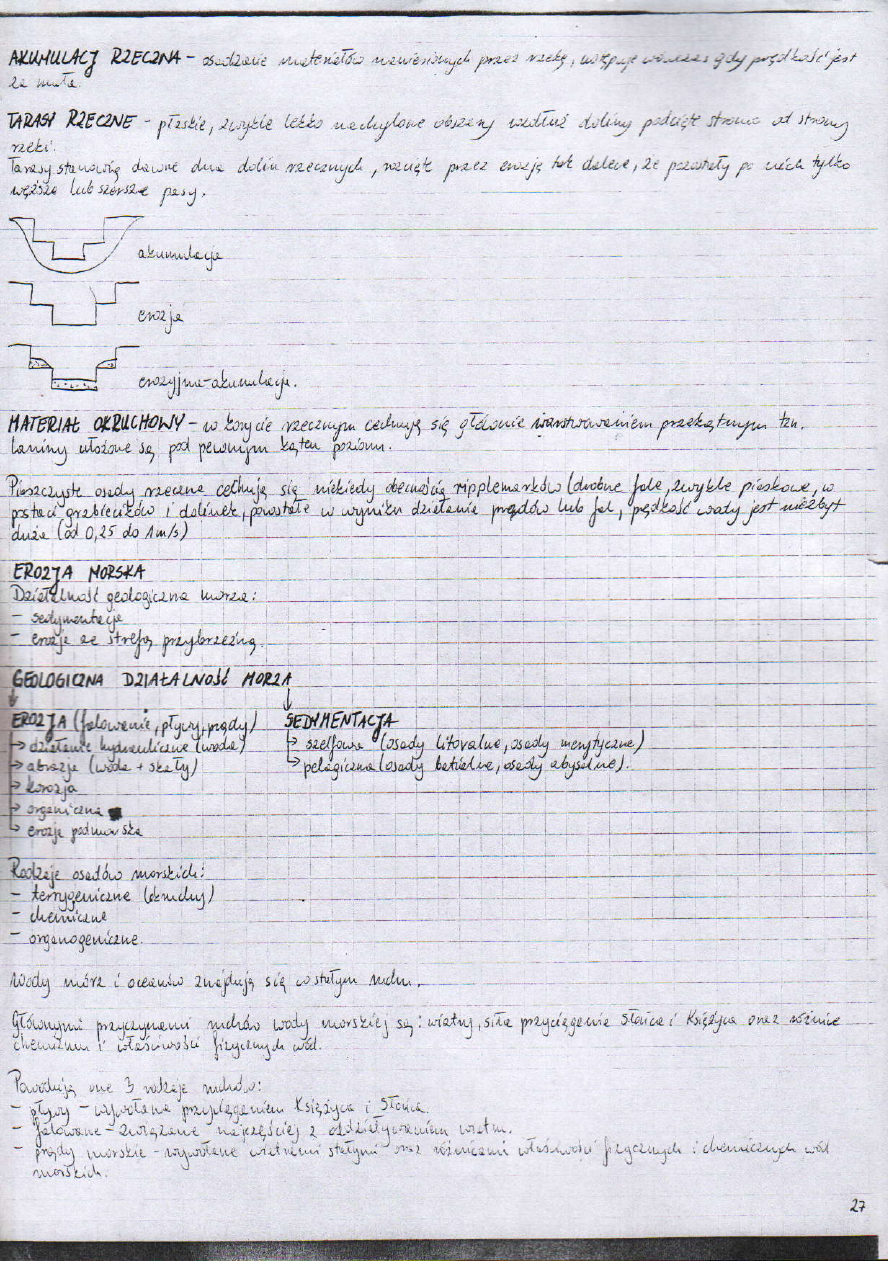 AKUMULACJ RZECZNA - osadzanie materiałów naniesionych przez rzekę, występuje wówczas gdy prędkość jest
za mała.
TARASY RZECZNE - płaskie, zwykle lekko nachylone obszary wzdłuż doliny podcięte stromo od strony
rzeki.
Tarasy stanowią dawne dna dolin rzecznych, rozcięte przez erozję tak dalece, że pozostały po nich tylko
węższe lub szersze pasy.
akumulacja
erozja
erozyjno-akumulacja.
MATERIAŁ OKRUCHOWY - w korycie rzecznym cechują się głównie warstwowaniem przekątnym tzn.
laminy ułożone są pod pewnym kątem poziomu.
Piaszczyste osady rzeczne cechują się niekiedy obecnością ripplemarków (drobne fale, zwykle piaskowe, w
postaci grzbiecików i dolinek, powstałe w wyniku działania prądów lub fal, prędkość wody jest niezbyt
duża (od 0,25 do 1m/s)
EROZJA MORSKA
Działalność geologiczna morza:
- sedymentacja
- erozja ze strefą przybrzeżną.
GEOLOGICZNA DZIAŁALNOŚĆ MORZA
↓ ↓
EROZJA (falowanie, pływy, prądy) SEDYMENTACJA
→ działanie hydrauliczne (woda) → szelfowa (osady litoralne, osady nerytyczne)
→ abrazja (woda + skały) → pelagiczna (osady batialne, osady abysalne).
→ korozja
→ organiczna
→ erozja podmorska
Rodzaje osadów morskich:
- terrygeniczne (okruchy)
- chemiczne
- organogeniczne.
Wody mórz i oceanów znajdują się w stałym ruchu.
Głównymi przyczynami ruchów wody morskiej są: wiatry, siła przyciągania Słońca i Księżyca oraz różnice
chemizmu i właściwości fizycznych wód.
Powodują one 3 rodzaje ruchów:
- pływy - wywołane przyciąganiem Księżyca i Słońca.
- falowanie - związane najczęściej z oddziaływaniem wiatru.
- prądy morskie - wywołane wiatrami stałymi oraz różnicami właściwości fizycznych i chemicznych wód
morskich.
27